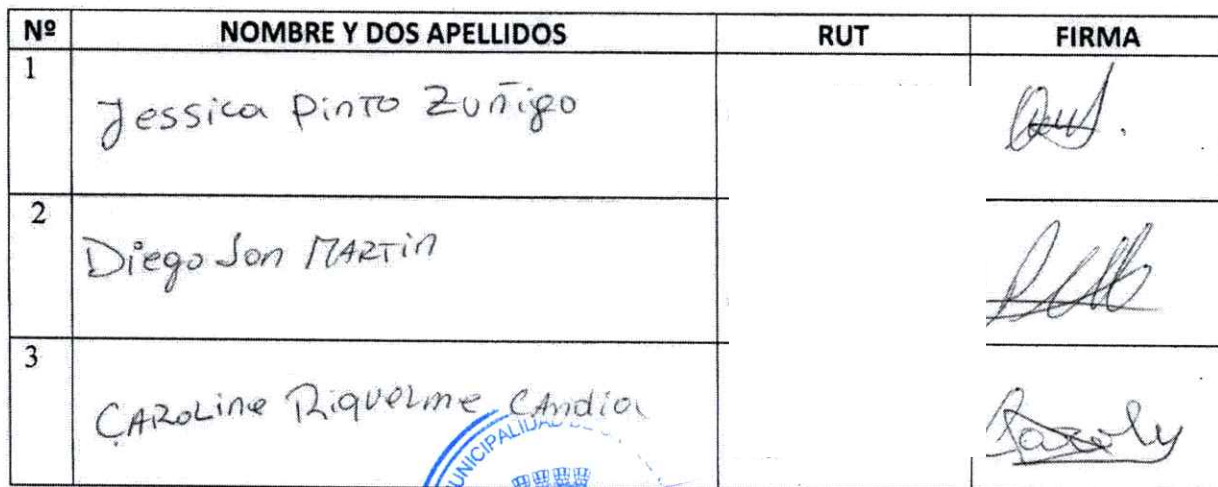 Nº NOMBRE Y DOS APELLIDOS RUT FIRMA
1 Jessica Pinto Zuñiga
2 Diego San MARTin
3 CAROLine Riquelme CAndia
MUNICIPALIDAD DE